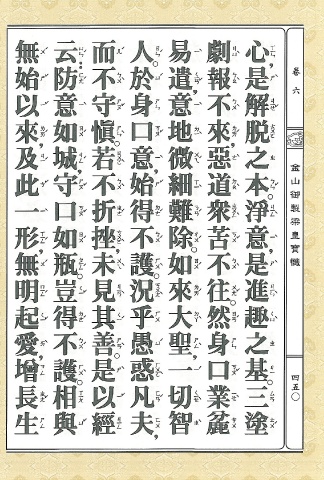 卷六
金山御製梁皇寶懺
四五〇
心是解脫之本。淨意是進趣之基。三塗
劇報不來。惡道衆苦不往。然身口業麁
易遣。意地微細難除。如來大聖。一切智
人。於身口意。始得不護。況乎愚惑凡夫,
而不守愼。若不折挫。未見其善。是以經
云。防意如城。守口如瓶。豈得不護。相與
無始以來。及此一形。無明起愛。增長生